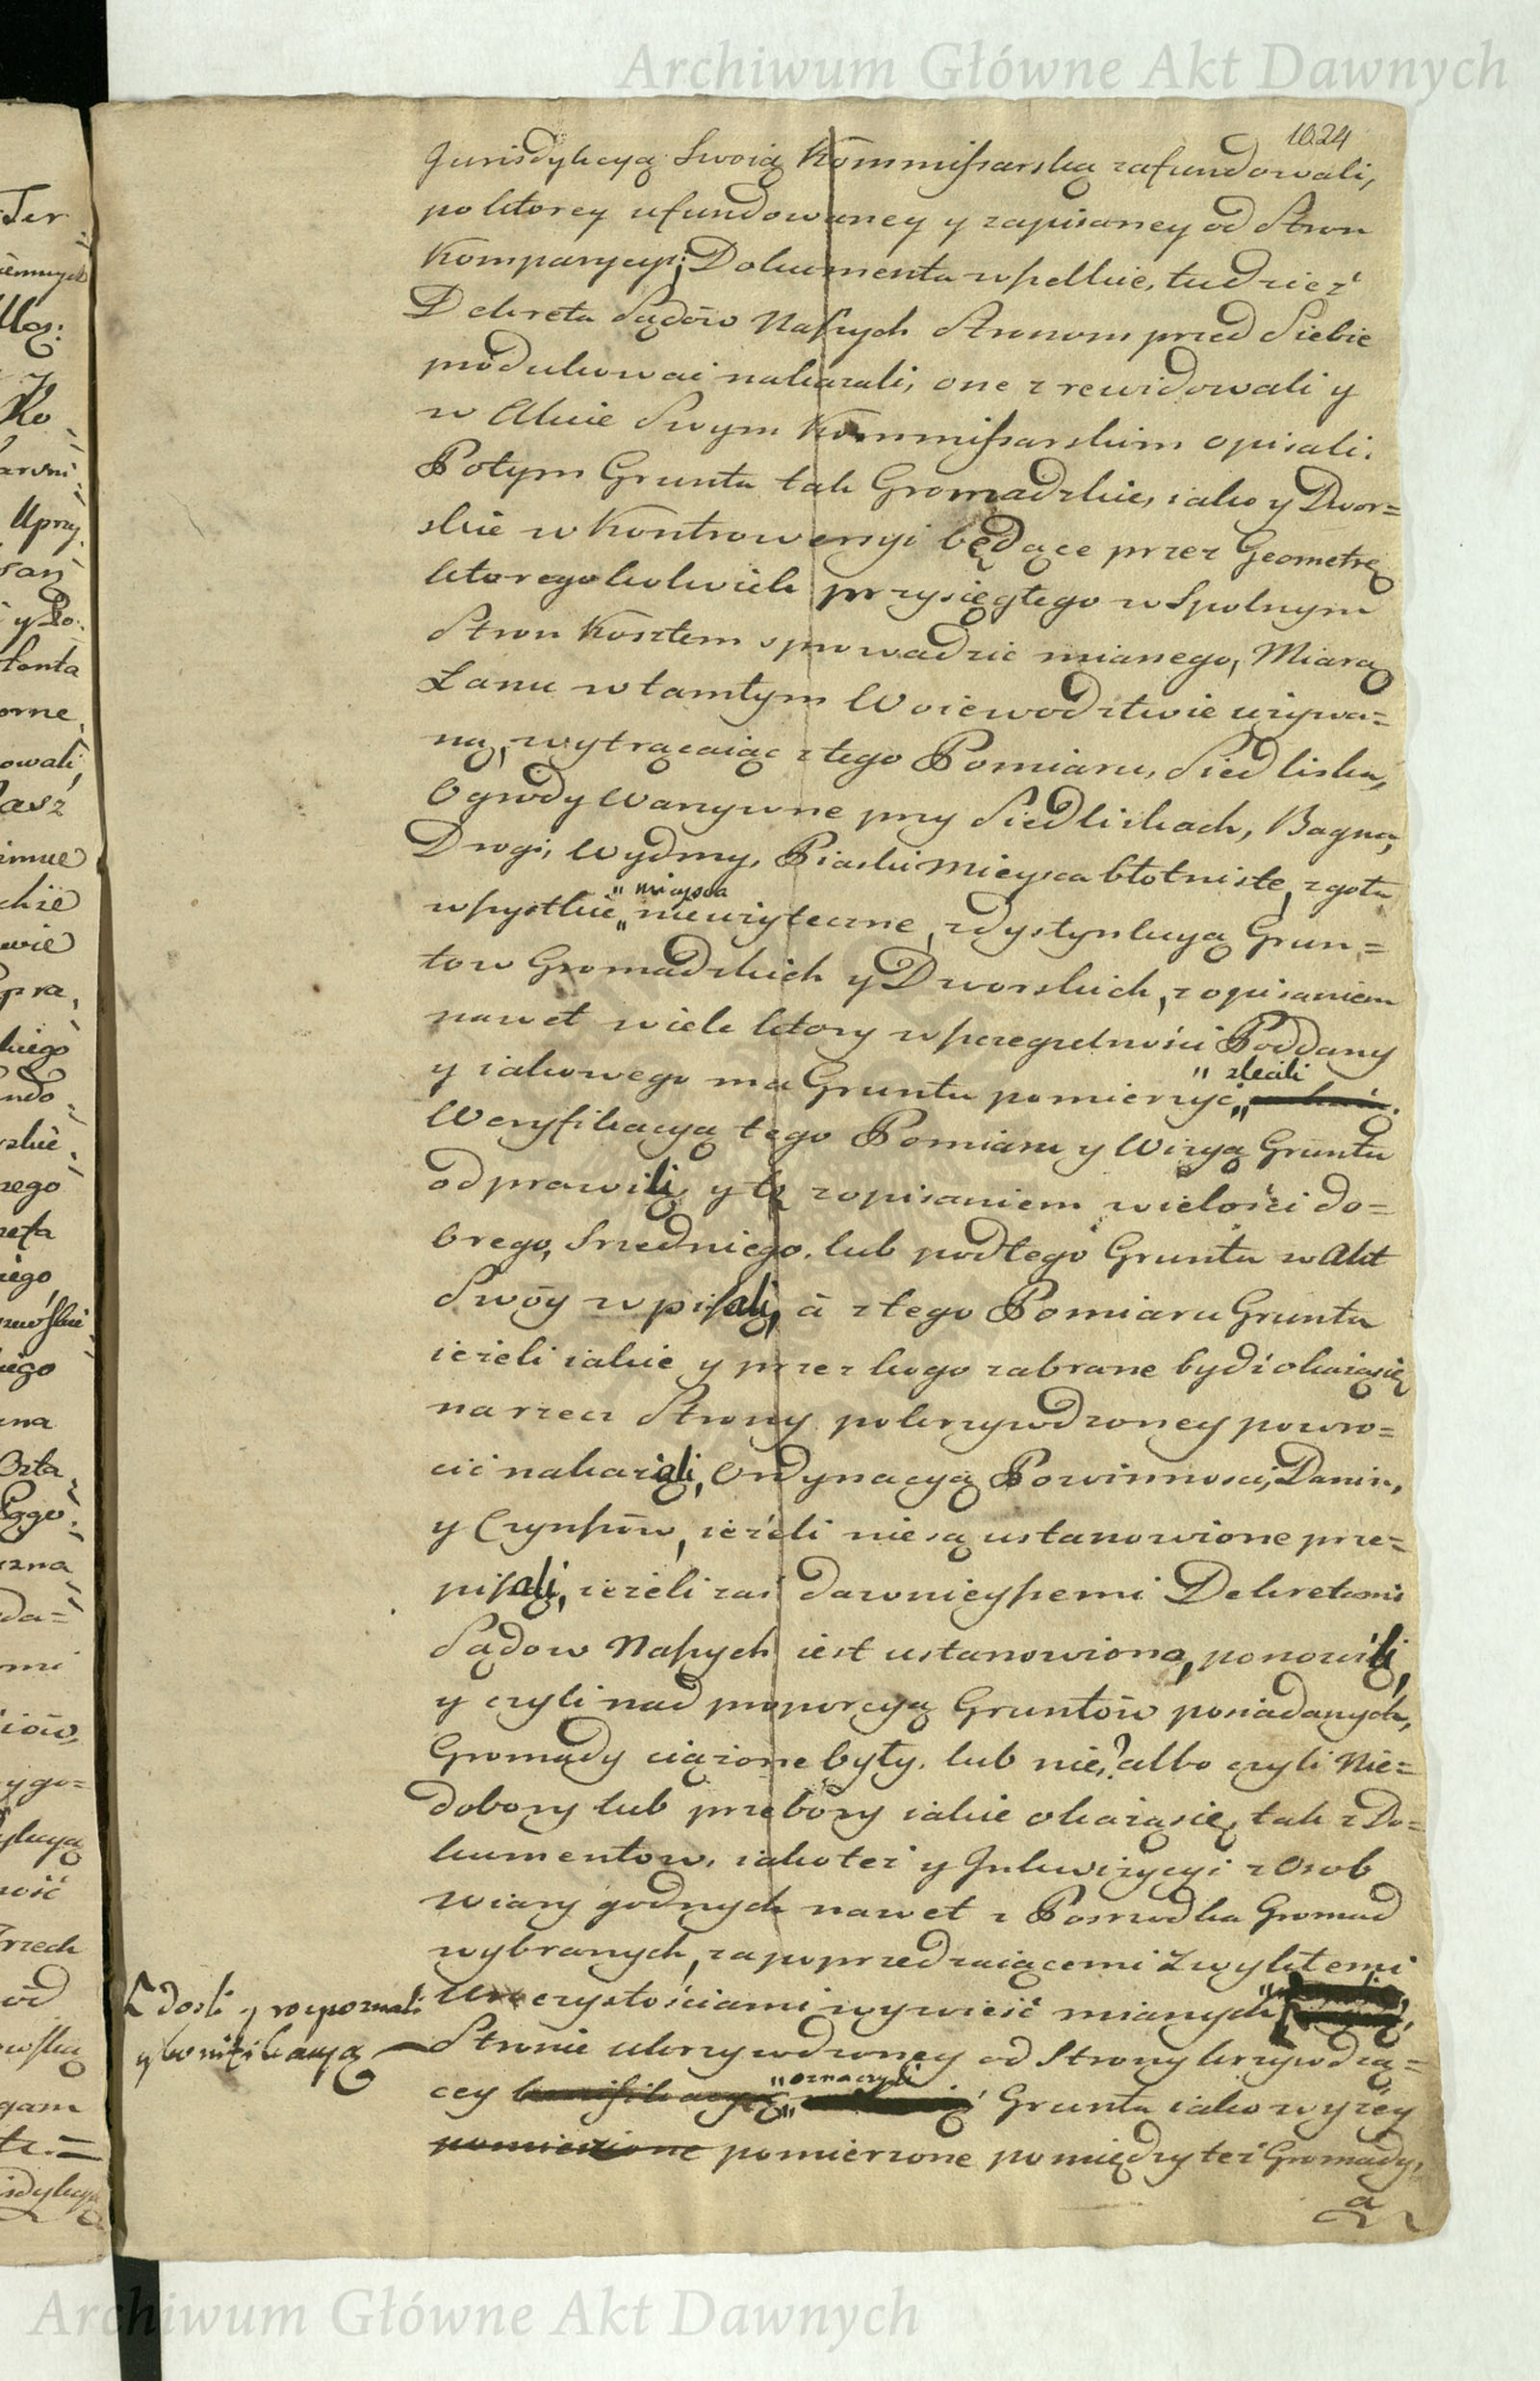 Archiwum Główne Akt Dawnych
1024
Jurisdykcyą Swoią Kommissarską zafundowali,
po ktorey ufundowaney y zapisaney od Stron
Komparycyi; Dokumenta wszelkie, tudzież
Dekreta Sądów Naszych Stronom przed Siebie
produkować nakazali, one zrewidowali y
w Akcie Swym Kommissarskim opisali.
Potym Grunta tak Gromadzkie, iako y Dwor=
skie w Kontrowersyi będące przez Geometrę
ktoregokolwiek przysięgłego wspolnym
Stron Kosztem sprowadzić mianego, Miarą
Łanu w tamtym Woiewodztwie używa=
ną, wytrącaiąc z tego Pomiaru, Siedliska,
Ogrody Warzywne przy Siedliskach, Bagna,
Drogi, Wydmy, Piaski Mieysca błotniste, zgoła
" mieysca
wszystkie „ nieużyteczne, z dystynkcyą Grun=
tow Gromadzkich y Dworskich, z opisaniem
nawet wiele ktory w szczegulności Poddany
" zlecili
y iakowego ma Gruntu pomierzyć „
Weryfikacyą tego Pomiaru y Wizyą Gruntu
odprawili, y tę z opisaniem wielości do=
brego, Srzedniego, lub podłego Gruntu w Akt
Swóy wpisali, à z tego Pomiaru Grunta
ieżeli iakie y przez kogo zabrane bydź okażą się
na rzecz Strony pokrzywdzoney powro=
cić nakazali, Ordynacyą Powinności, Danin,
y Czynszów, ieżeli nie są ustanowione prze=
pisali, ieżeli zaś dawnieyszemi Dekretami
Sądow Naszych iest ustanowiona, ponowili,
y czyli nad proporcyą Gruntów posiadanych,
Gromady ciążone były, lub nie? albo czyli Nie=
dobory lub przebory iakie okażą się, tak z Do=
kumentow, iako też y Inkwizycyi z Osob
wiary godnych nawet z Posrzodka Gromad
wybranych, zapoprzedzaiącemi zwykłemi
Uroczystościami wywieść mianych
doszli y rozpoznali
y bonifikacyą
Stronie ukrzywdzoney od Strony krzywdzą=
" oznaczyli
cey bonifikacyą „ Grunta iako wyżey
pomienione pomierzone pomiędzy też Gromady,
a
Archiwum Główne Akt Dawnych